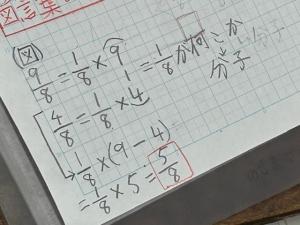 (図)
9/8 = 1/8 × 9 = 1/8 が何こか
分子
4/8 = 1/8 × 4
1/8 × (9 − 4)
= 1/8 × 5 = 5/8